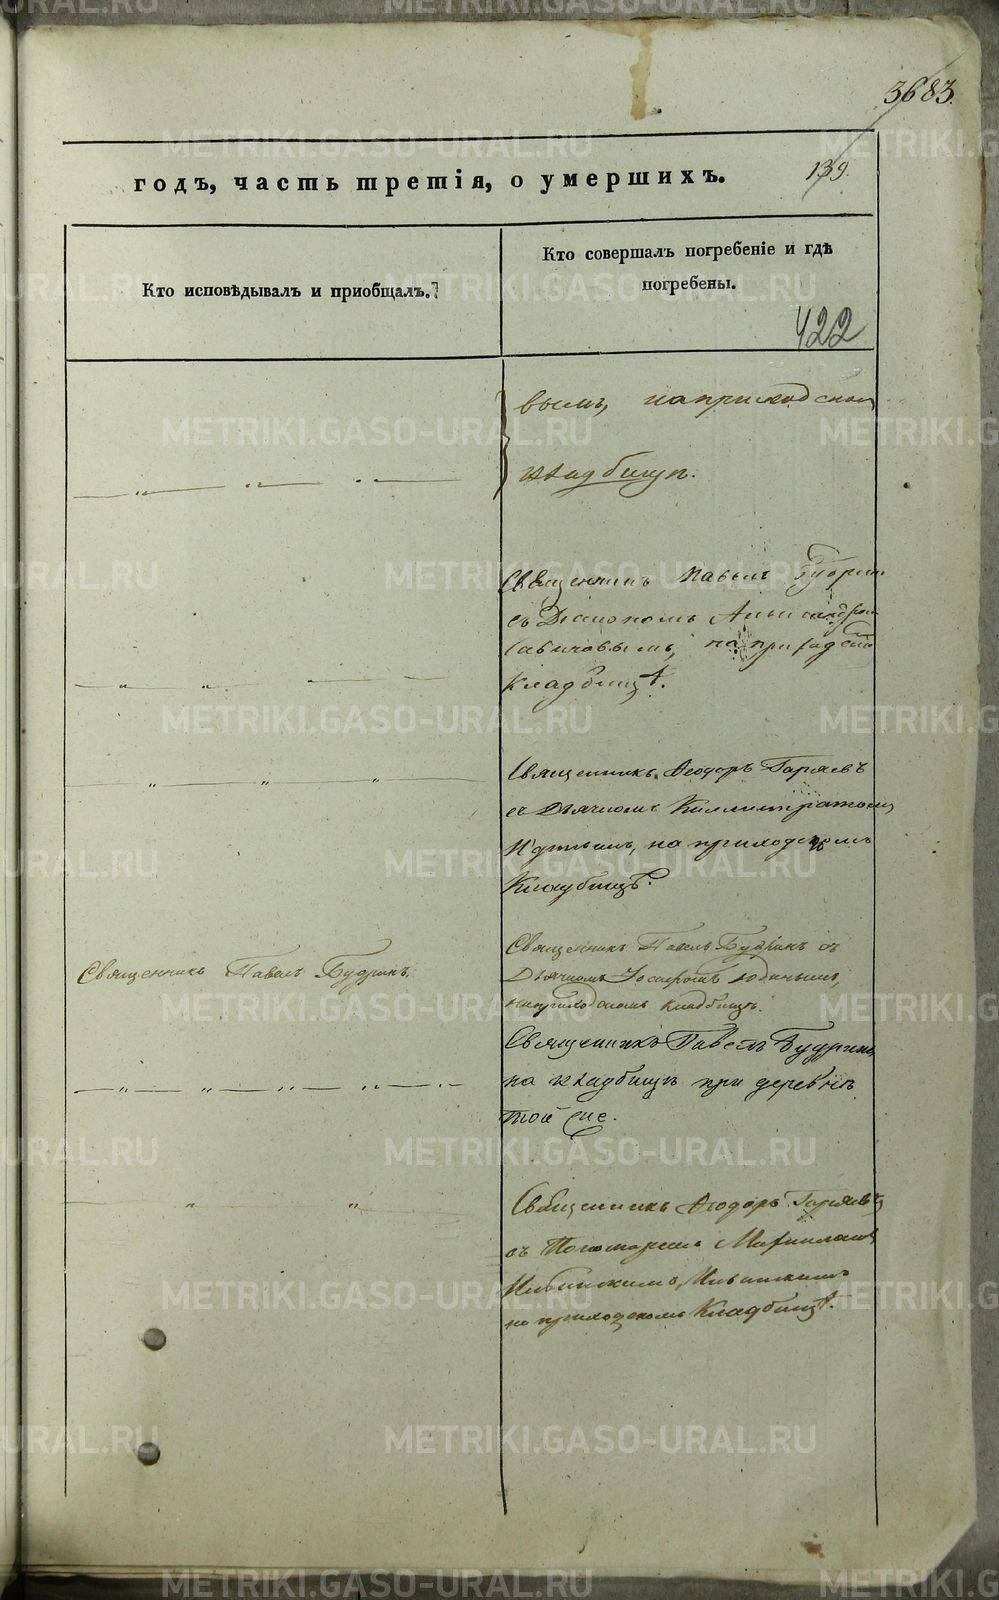 3683.
годъ, часть третія, о умершихъ.
139.
Кто исповѣдывалъ и приобщалъ.?
Кто совершалъ погребеніе и гдѣ
погребены.
422
вымъ, на приходском
кладбищѣ.
Священникъ Павелъ Будрин
съ Діакономъ
на
Кладбищѣ.
Священникъ Ѳеодоръ Гаряевъ
съ Дьячкомъ
на приходскомъ
Кладбищѣ.
Священникъ Павелъ Будринъ съ
Священникъ Павелъ Будринъ.
Дьячкомъ
на приходскомъ кладбищѣ.
Священникъ Павелъ Будринъ
на кладбищѣ при деревнѣ
той же.
Священникъ Ѳеодоръ Гаряевъ
съ Пономаремъ
на приходскомъ Кладбищѣ.
METRIKI.GASO-URAL.RU